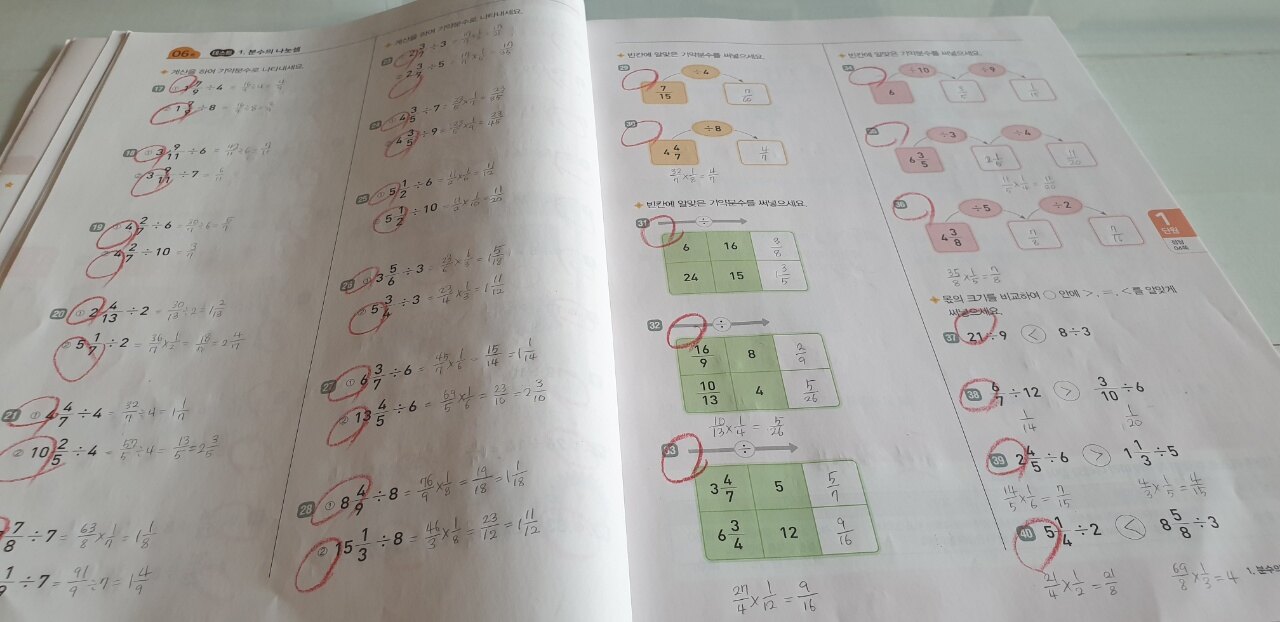 06
테스트 1. 분수의 나눗셈
계산을 하여 기약분수로 나타내세요.
17 1 7/9 ÷ 4 = 16/9 ÷ 4 = 4/9
÷ 8
18 ① 3 9/11 ÷ 6
3 9/11 ÷ 7 = 6/11
19 4 2/7 ÷ 6 = 30/7 ÷ 6 = 5/7
4 2/7 ÷ 10 = 3/7
20 ① 2 4/13 ÷ 2 = 30/13 ÷ 2 = 1 2/13
② 5 1/7 ÷ 2 = 36/7 × 1/2 = 18/7 = 2 4/7
21 ① 4 4/7 ÷ 4 = 32/7 ÷ 4 = 1 1/7
② 10 2/5 ÷ 4 = ÷ 4 = 13/5 = 2 3/5
7/8 ÷ 7 = 63/8 × 1/7 = 1 1/8
1/9 ÷ 7 = 91/9 ÷ 7 = 1 4/9
계산을 하여 기약분수로 나타내세요.
23 2 3/7 ÷ 3
2 3/7 ÷ 5
24 ① 4 3/5 ÷ 7 = 23/5 × 1/7 = 23/35
4 3/5 ÷ 9 = 23/5 × 1/9 = 23/45
25 ① 5 1/2 ÷ 6 = 11/2 × 1/6 = 11/12
5 1/2 ÷ 10 = 11/2 × 1/10 = 11/20
26 ① 3 5/6 ÷ 3 = 23/6 × 1/3 = 1 5/18
② 5 3/4 ÷ 3 = 23/4 × 1/3 = 1 11/12
27 ① 6 3/7 ÷ 6 = 45/7 × 1/6 = 15/14 = 1 1/14
② 13 4/5 ÷ 6 = 69/5 × 1/6 = 23/10 = 2 3/10
28 ① 8 4/9 ÷ 8 = 76/9 × 1/8 = 19/18 = 1 1/18
② 15 1/3 ÷ 8 = 46/3 × 1/8 = 23/12 = 1 11/12
빈칸에 알맞은 기약분수를 써넣으세요.
29 ÷4
7/15 7/60
30 ÷8
4 4/7 4/7
32/7 × 1/8 = 4/7
빈칸에 알맞은 기약분수를 써넣으세요.
31 ÷
6 16 3/8
24 15 1 3/5
32 ÷
16/9 8 2/9
10/13 4 5/26
10/13 × 1/4 = 5/26
33 ÷
3 4/7 5 5/7
6 3/4 12 9/16
27/4 × 1/12 = 9/16
빈칸에 알맞은 기약분수를 써넣으세요.
34 ÷10 ÷9
6 3/5 1/15
35 ÷3 ÷4
6 3/5 2 1/5 11/20
11/5 × 1/4 = 11/20
36 ÷5 ÷2
4 3/8 7/8 7/16
35/8 × 1/5 = 7/8
몫의 크기를 비교하여 ○ 안에 >, =, <를 알맞게
써넣으세요.
37 21÷9 < 8÷3
38 6/7 ÷ 12 > 3/10 ÷ 6
1/14 1/20
39 2 4/5 ÷ 6 > 1 1/3 ÷ 5
14/5 × 1/6 = 7/15 4/3 × 1/5 = 4/15
40 5 1/4 ÷ 2 < 8 5/8 ÷ 3
21/4 × 1/2 = 21/8 69/8 × 1/3 = 4
1
단원
정답
1. 분수의